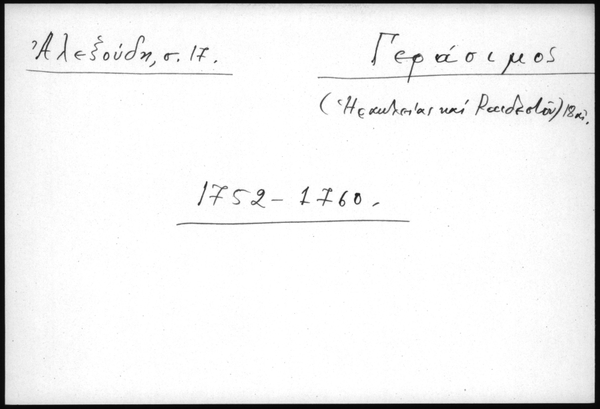 Ἀλεξούδη, σ. 17.
Γεράσιμος
(Ἡρακλείας καί Ραιδεστοῦ) 18 αἰ.
1752 – 1760.